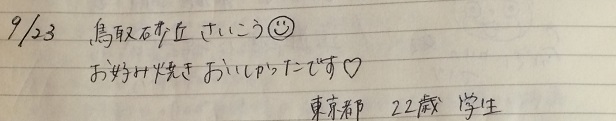 9/23 鳥取砂丘 さいこう☺
お好み焼き おいしかったです♡
東京都 22歳 学生